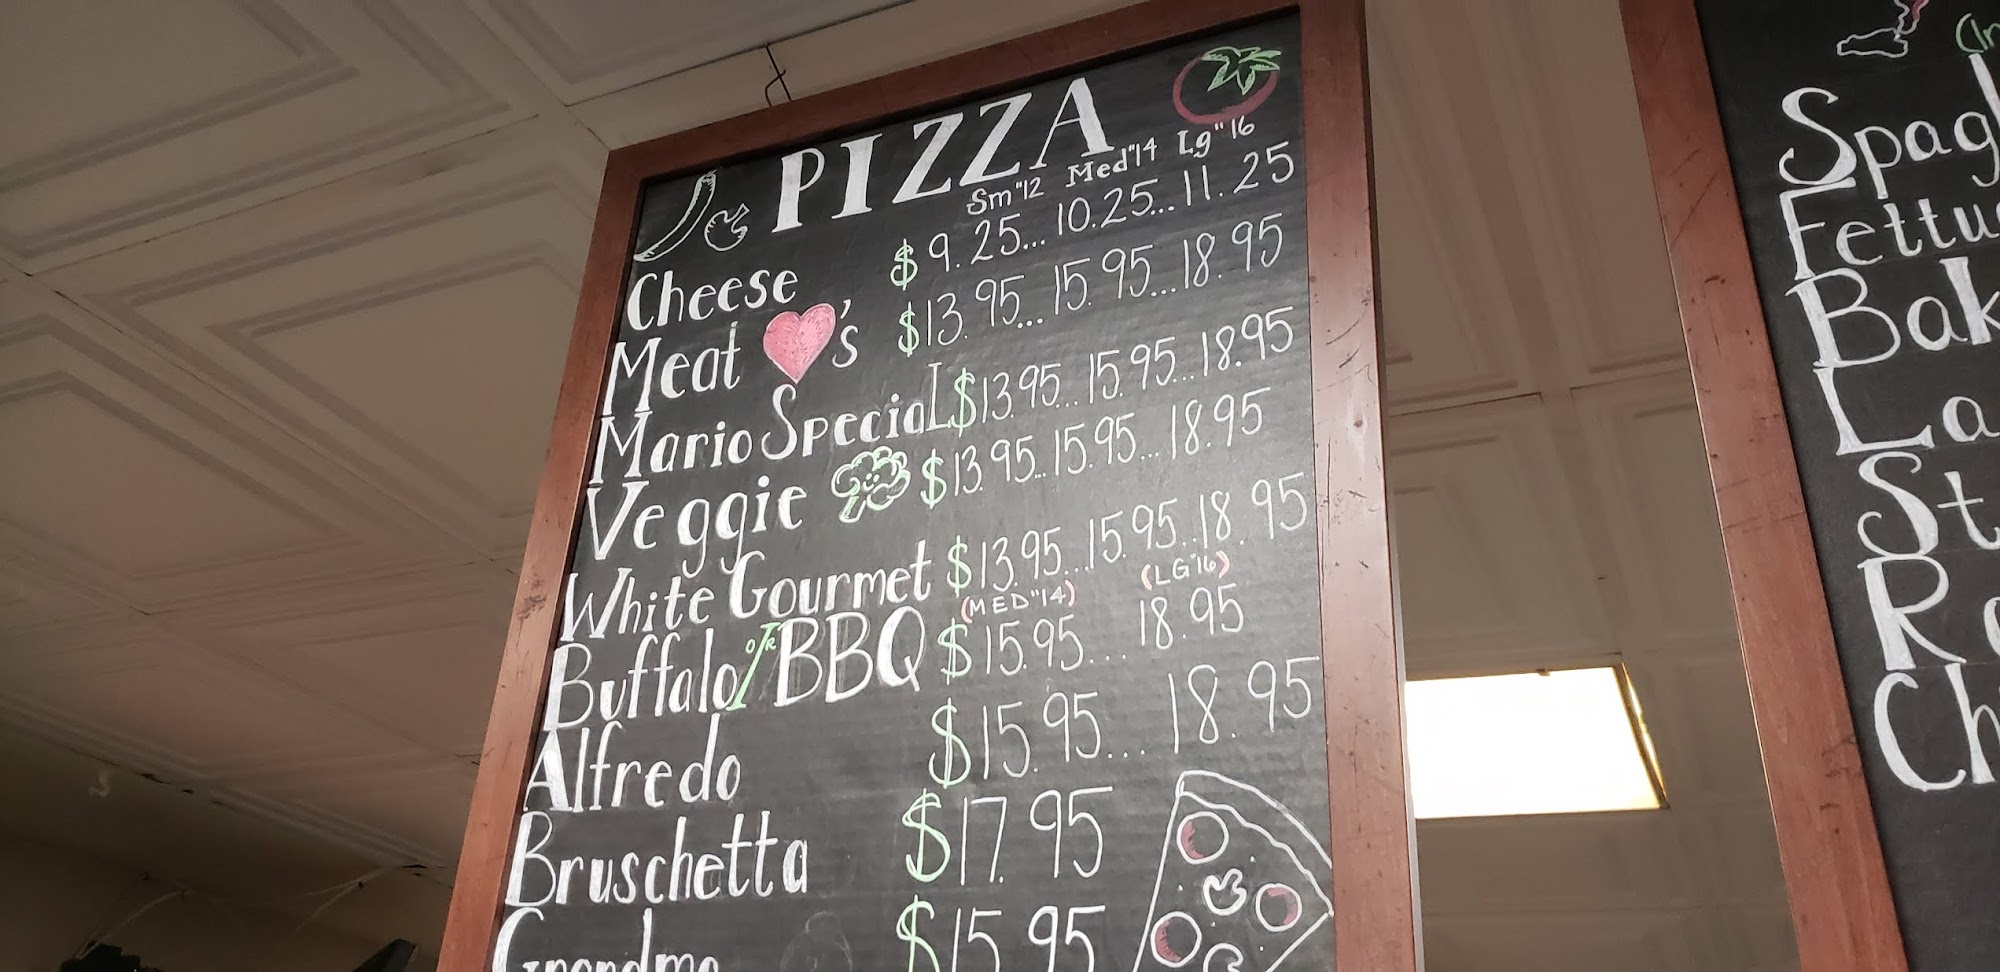 PIZZA
Sm"12 Med"14 Lg"16
Cheese $9.25...10.25...11.25
Meat 's $13.95...15.95...18.95
Mario Special $13.95...15.95...18.95
Veggie $13.95...15.95...18.95
White Gourmet $13.95...15.95...18.95
(MED"14) (LG"16)
Buffalo OR BBQ $15.95...18.95
Alfredo $15.95...18.95
Bruschetta $17.95
Grandma $15.95
(In
Spagh
Fettu
Bak
La
St
Ra
Ch